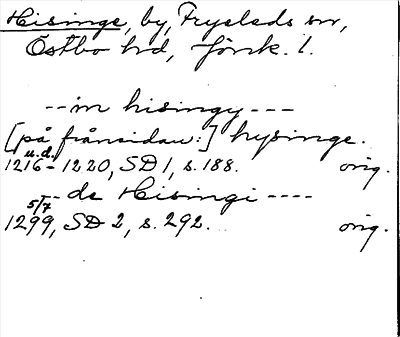 Hisinge, by, Fryeleds sn,
Östbo hd, Jönk. l.
--in hisingy---
[på frånsidan:] hysinge.
u.d.
1216-1220, SD 1, s. 188. orig.
-- de Hisingi ----
5/7
1299, SD 2, s. 292. orig.